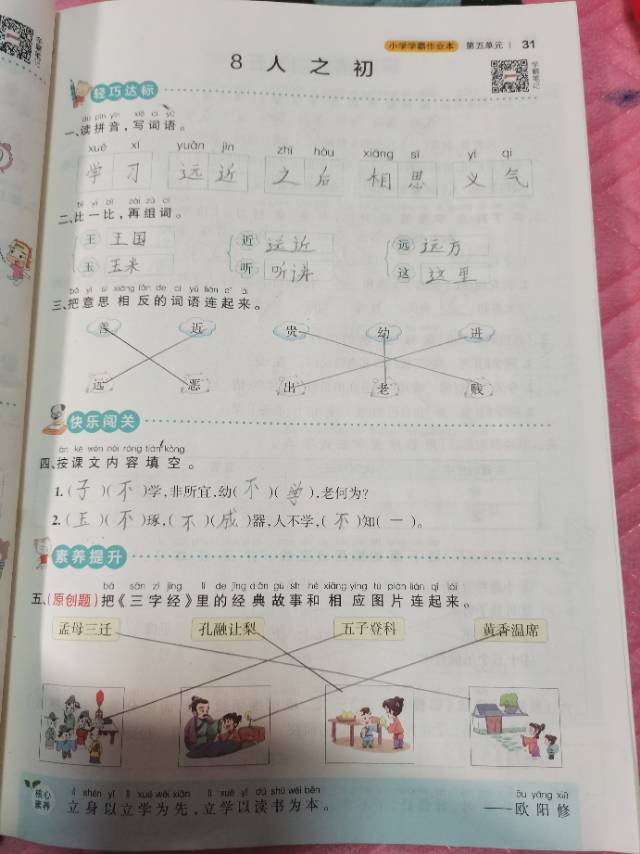 小学学霸作业本 第五单元 31
8 人之初
学霸笔记
轻巧达标
dú pīn yīn xiě cí yǔ
一、读拼音，写词语。
xué xí yuǎn jìn zhī hòu xiāng sī yì qì
学习 远近 之后 相思 义气
bǐ yì bǐ zài zǔ cí
二、比一比，再组词。
王 王国 近 远近 远 远方
玉 玉米 听 听讲 这 这里
bǎ yì si xiāng fǎn de cí yǔ lián qǐ lái
三、把意思相反的词语连起来。
善 近 贵 幼 进
远 恶 出 老 贱
快乐闯关
àn kè wén nèi róng tián kòng
四、按课文内容填空。
1.(子)(不)学,非所宜,幼(不)(学),老何为?
2.(玉)(不)琢,(不)(成)器,人不学,(不)知(一)。
素养提升
bǎ sān zì jīng lǐ de jīng diǎn gù shi hé xiāng yìng tú piàn lián qǐ lái
五、(原创题)把《三字经》里的经典故事和相应图片连起来。
孟母三迁 孔融让梨 五子登科 黄香温席
核心素养
lì shēn yǐ lì xué wéi xiān lì xué yǐ dú shū wéi běn
立身以立学为先,立学以读书为本。
ōu yáng xiū
——欧阳修